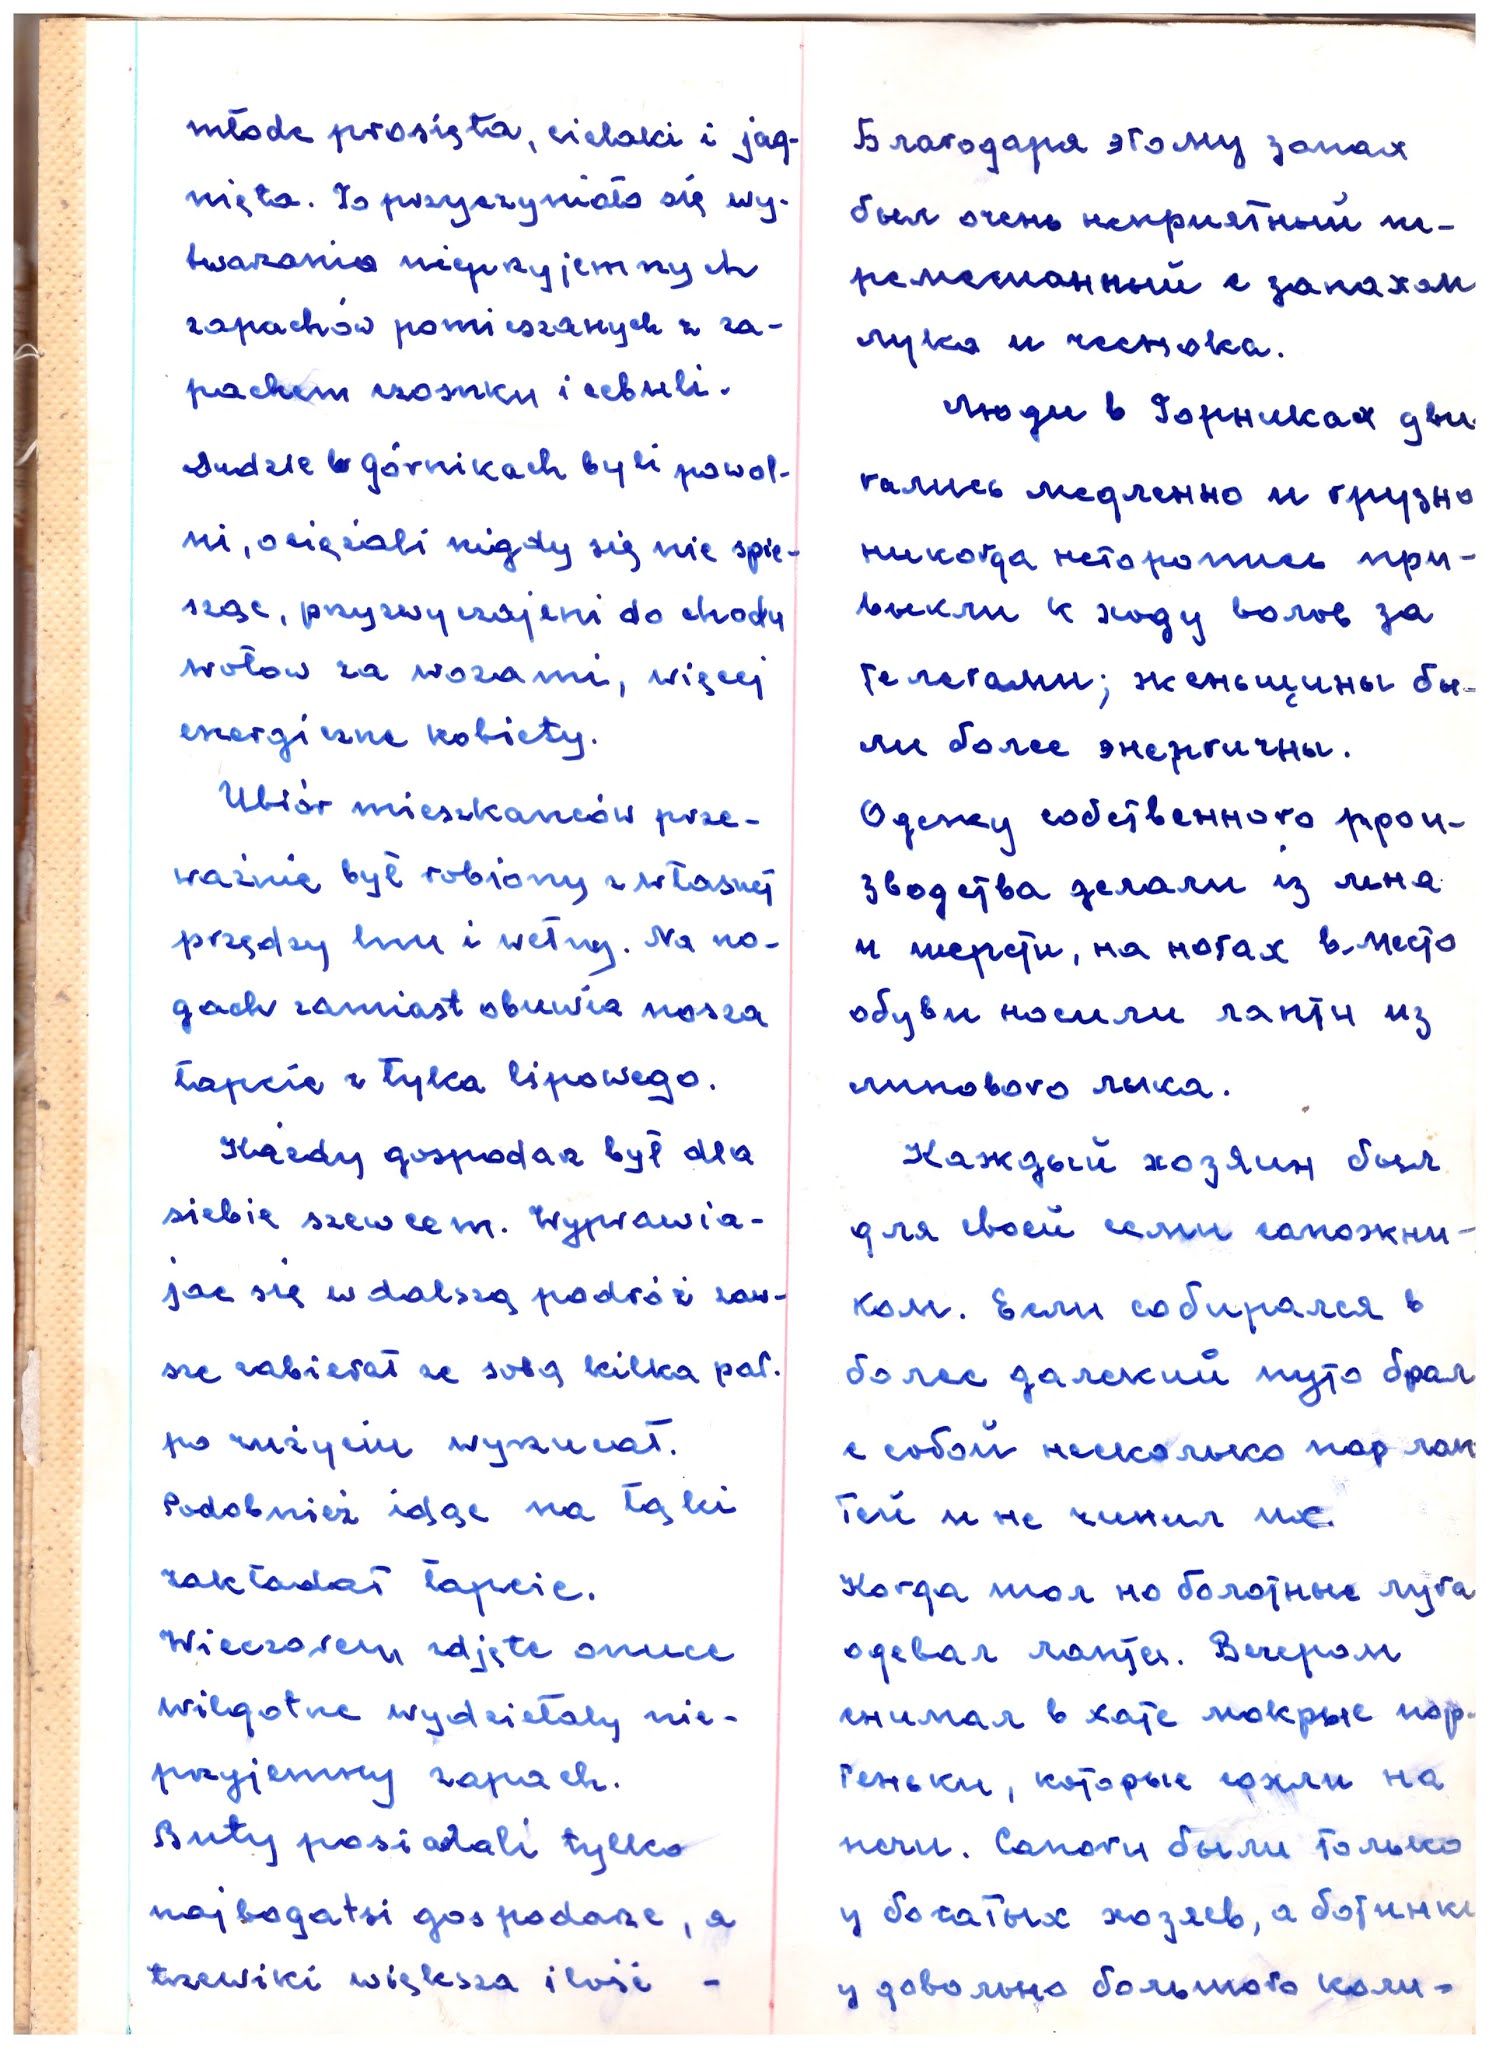 młode prosięta, cielaki i jag-
nięta. To przyczyniało się wy-
twarzania nieprzyjemnych
zapachów pomieszanych z za-
pachem czosnku i cebuli.
Ludzie w Górnikach byli powol-
ni, ociężali nigdy się nie spie-
sząc, przyzwyczajeni do chodu
wołów za wozami, więcej
energiczne kobiety.
Ubiór mieszkańców prze-
ważnie był robiony z własnej
przędzy lnu i wełny. Na no-
gach zamiast obuwia nosza
łapcie z łyka lipowego.
Każdy gospodaz był dla
siebie szewcem. Wyprawia-
jac się w dalszą podróż zaw-
sze zabierał ze sobą kilka par.
po zużyciu wyrzucał.
Podobnież idąc na łąki
zakładał łapcie.
Wieczorem zdjęte onuce
wilgotne wydzielały nie-
przyjemny zapach.
Buty posiadali tylko
najbogatsi gospodarze, a
trzewiki większa ilość -
Благодаря этому запах
был очень неприятный пе-
ремешанный с запахом
лука и чеснока.
Люди в Горниках дви
гались медленно и грузно
никогда неторопись при-
выкли к ходу волов за
телегами; женьщины бы-
ли более энергичны.
Одежу собственного прои-
зводства делали із лена
и шерсти, на ногах вместо
обуви носили лапти из
липового лыка.
Каждый хозяин был
для своей семи сапожни-
ком. Если собирался в
более далекий путь брал
с собой несколько пар лап
тей и не чинил их.
Когда шол на болотные луга
одевал лапти. Вечером
снимал в хате мокрые пор-
теньки, которые сохли на
печи. Сапоги были только
у богатых хозяев, а ботинки
у довольно большого коли-